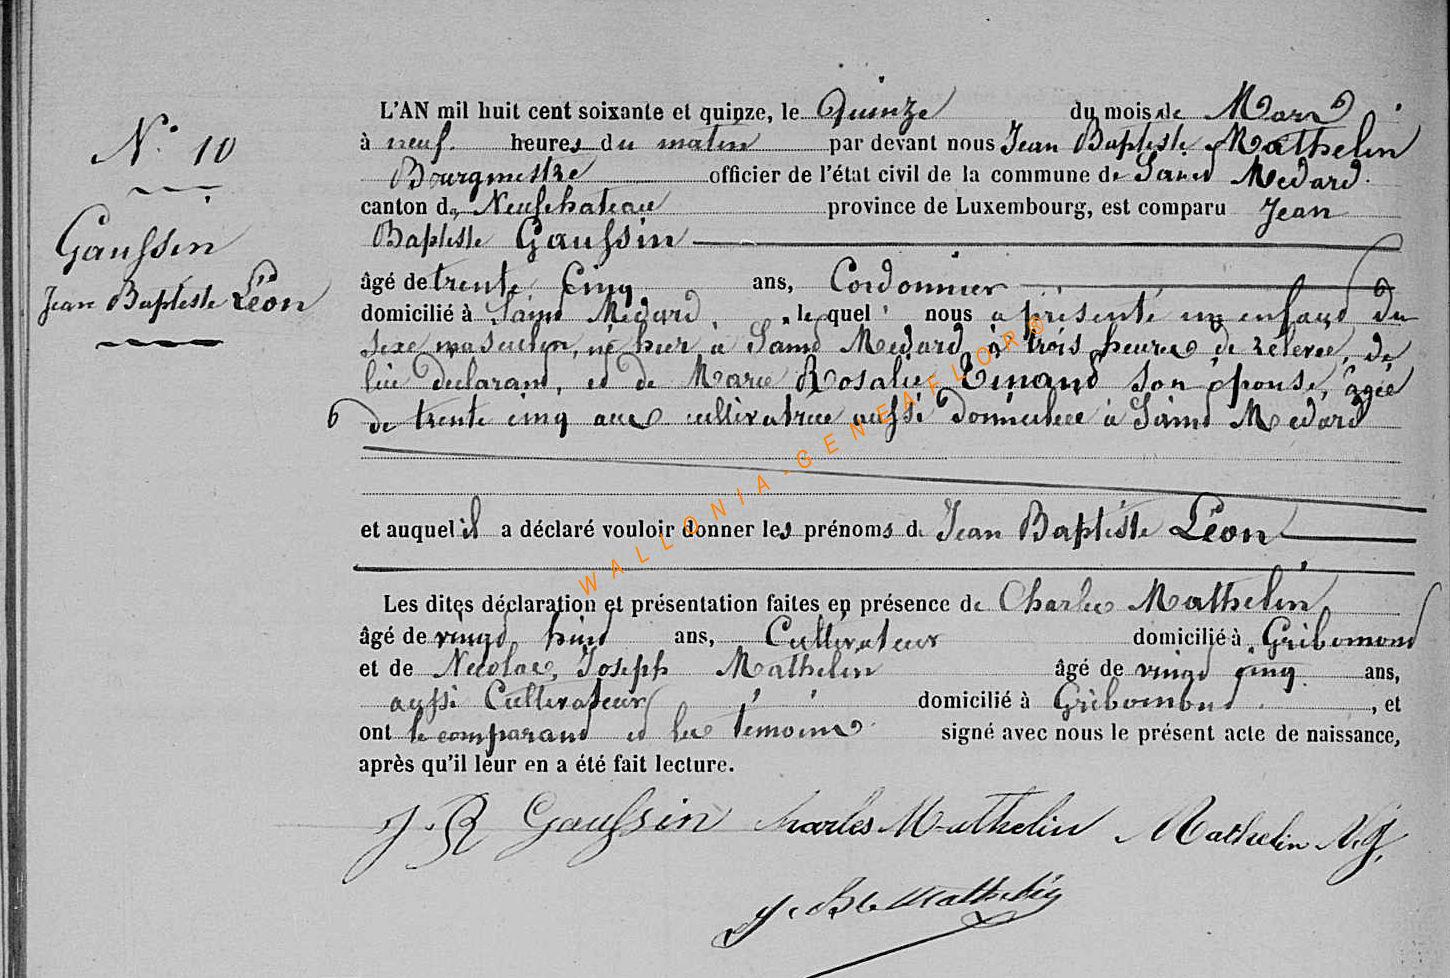 N° 10
Gaussin
Jean Baptiste Léon
L'AN mil huit cent soixante et quinze, le Quinze du mois de Mars
à neuf heures du matin par devant nous Jean Baptiste Mathelin
Bourgmestre officier de l'état civil de la commune de Saint Médard
canton de Neufchateau province de Luxembourg, est comparu Jean
Baptiste Gaussin
âgé de trente cinq ans, Cordonnier
domicilié à Saint Médard, lequel nous a présenté un enfant du
sexe masculin, né hier à Saint Médard à trois heures de relevée, de
lui déclarant, et de Marie Rosalie Einand son épouse, âgée
de trente cinq ans cultivatrice aussi domiciliée à Saint Médard
et auquel il a déclaré vouloir donner les prénoms de Jean Baptiste Léon
Les dites déclaration et présentation faites en présence de Charles Mathelin
âgé de vingt huit ans, Cultivateur domicilié à Gribomont
et de Nicolas Joseph Mathelin âgé de vingt cinq ans,
aussi Cultivateur domicilié à Gribomont, et
ont le comparant et les témoins signé avec nous le présent acte de naissance,
après qu'il leur en a été fait lecture.
J. B Gaussin Charles Mathelin Mathelin N.J.
J. Bte Mathelin
WALLONIA-GENEAFLOR®